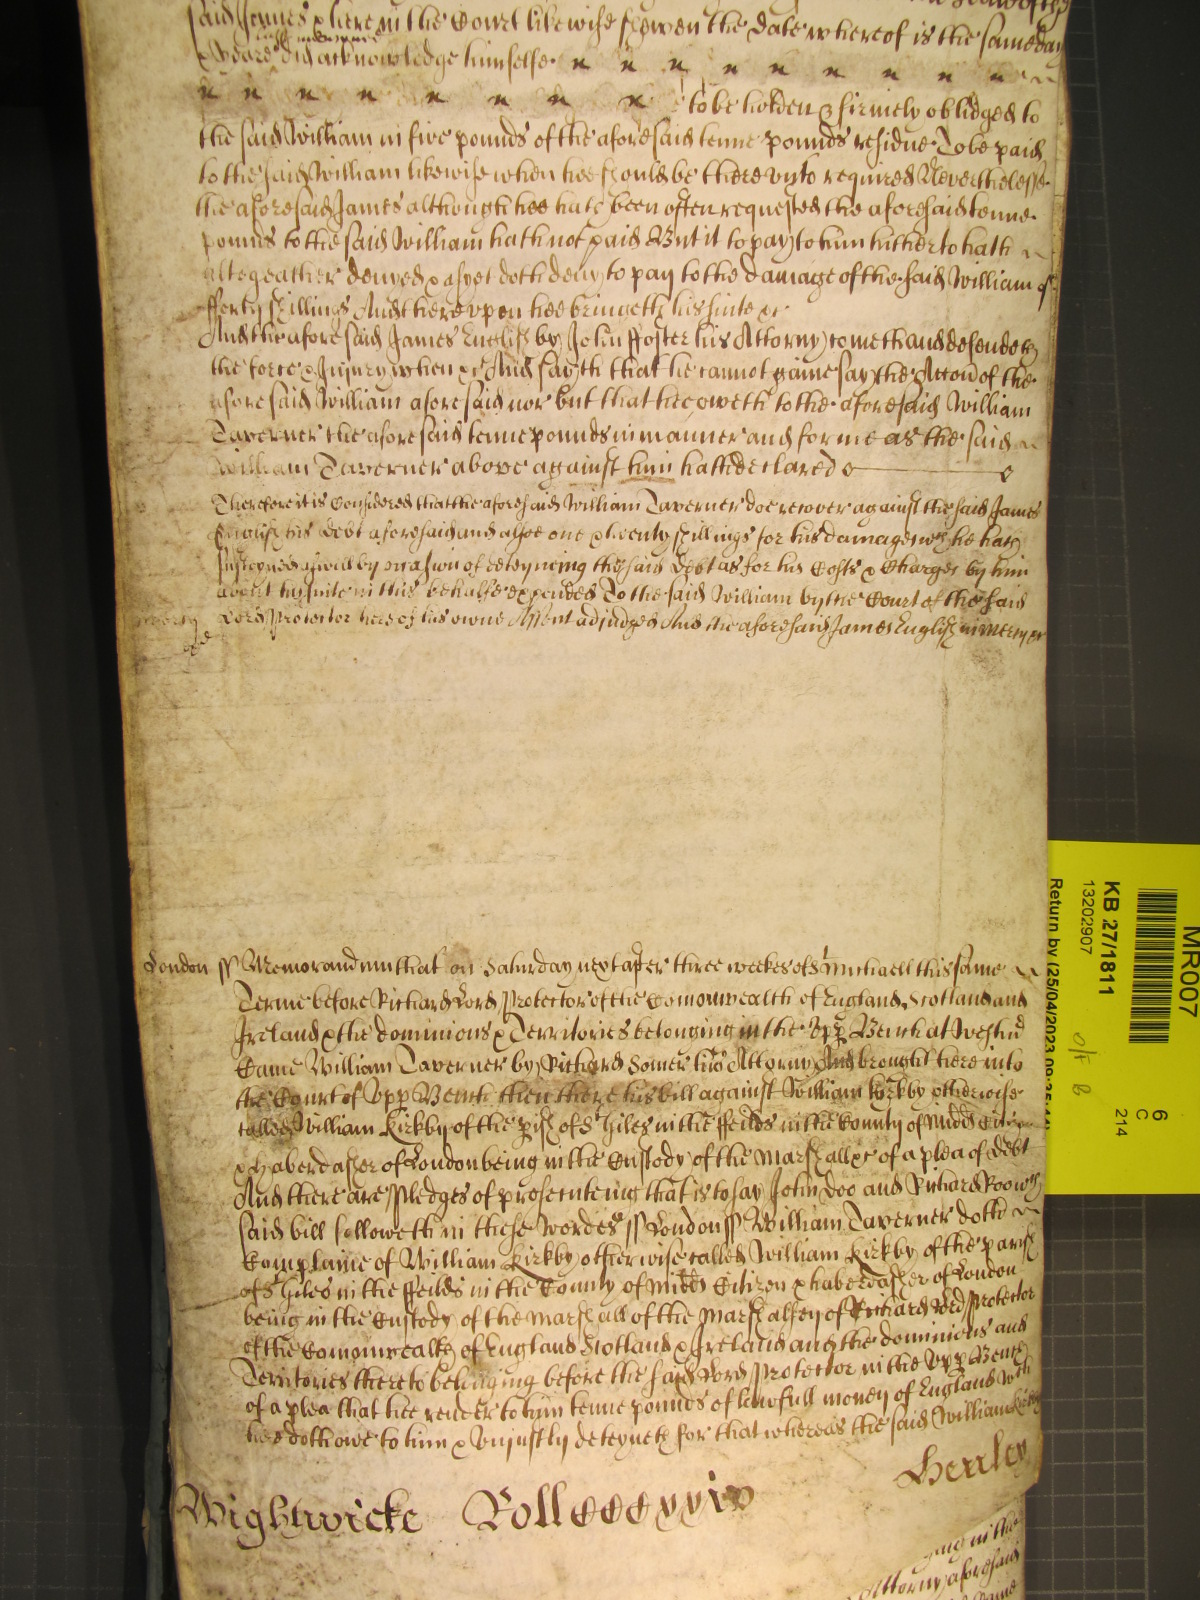 said James & here in the Court likewise shewen the date whereof is the same day
& yeare did acknowledge himselfe
to be holden & firmely obliged to
the said William in five pounds of the aforesaid tenne pounds residue To be paid
to the said William likewise when hee should be there unto required Neverthelesse
the aforesaid James although hee hath been often requested the aforesaid tenne
pounds to the said William hath not paid But it to pay to him hitherto hath
altogeather denyed & as yet doth deny to pay to the damage of the said William of
fforty shillings And thereupon hee bringeth his suite &c
And the aforesaid James English by John ffoster his Attorny cometh and defendeth
the force & Injury when &c And sayth that he cannot gainesay the Accon of the
aforesaid William aforesaid nor but that hee oweth to the aforesaid William
Taverner the aforesaid tenne pounds in manner and forme as the said
William Taverner above against him hath declared
Therefore it is Considered that the aforesaid William Taverner doe recover against the said James
English his debt aforesaid and alsoe one & twenty shillings for his damages wch he hath
susteyned aswell by occasion of deteyneing the said debt as for his Costs & Charges by him
about his suite in this behalfe expended To the said William by the Court of the said
Lord Protector here of his owne Assent adjudged And the aforesaid James English in mercy &c
London ss Memorandum that on Saturday next after three weekes of St Michaell this same
Terme before Richard Lord Protector of the Comonwealth of England Scotland and
Ireland & the dominions & Territories belonging in the Upp Bench at Westmr
Came William Taverner by Richard Somer his Attorny And brought here into
the Court of Upp Bench then there his bill against William Kirkby otherwise
called William Kirkby of the pish of St Giles in the ffeilds in the County of Midd
& haberdasher of London being in the Custody of the Marshall &c of a plea of debt
And there are Pledges of prosecuteing that is to say John Doo and Richard Roo wch
said bill followeth in these wordes ss London ss William Taverner doth
Complaine of William Kirkby otherwise called William Kirkby of the parish
of St Giles in the ffeilds in the County of Midd Citizen & haberdasher of London
being in the Custody of the Marshall of the Marshalsey of Richard Lord Protector
of the Comonwealth of England Scotland & Ireland and the dominions and
Territories thereto belonging before the said Lord Protector in the Upp Bench
of a plea that hee render to him tenne pounds of lawfull money of England wch
hee doth owe to him & Unjustly deteyneth for that whereas the said William Kirkby
Wightwicke Roll ccccxxiv
ging in the
Attorny aforesaid
MR007
KB 27/1811
13202907
6
C
214